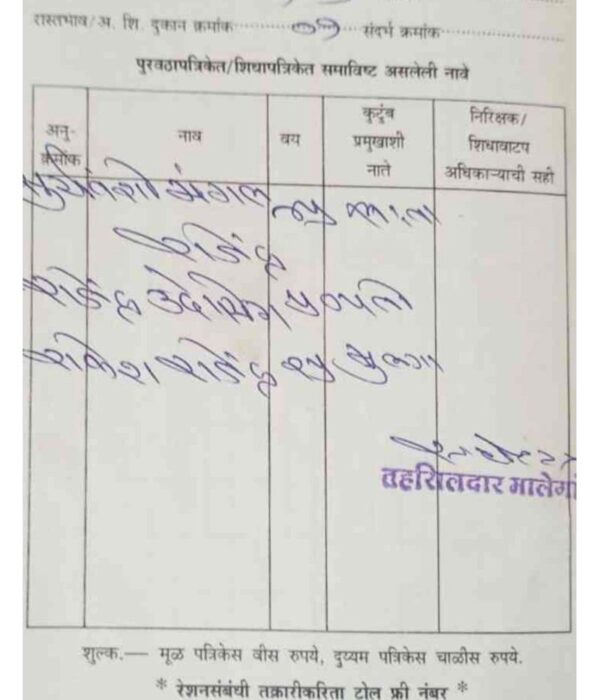 रास्तभाव/अ. शि. दुकान क्रमांक संदर्भ क्रमांक
पुरवठापत्रिकेत/शिधापत्रिकेत समाविष्ट असलेली नावे
अनु-
क्रमांक
नाव
वय
कुटुंब
प्रमुखाशी
नाते
निरिक्षक/
शिधावाटप
अधिकाऱ्याची सही
मंगल
राजेंद्र
राजेंद्र उदेसिंग पती
राकेश राजेंद्र मुलगा
तहसिलदार मालेगां
शुल्क.— मूळ पत्रिकेस वीस रुपये, दुय्यम पत्रिकेस चाळीस रुपये.
* रेशनसंबंधी तक्रारीकरिता टोल फ्री नंबर *